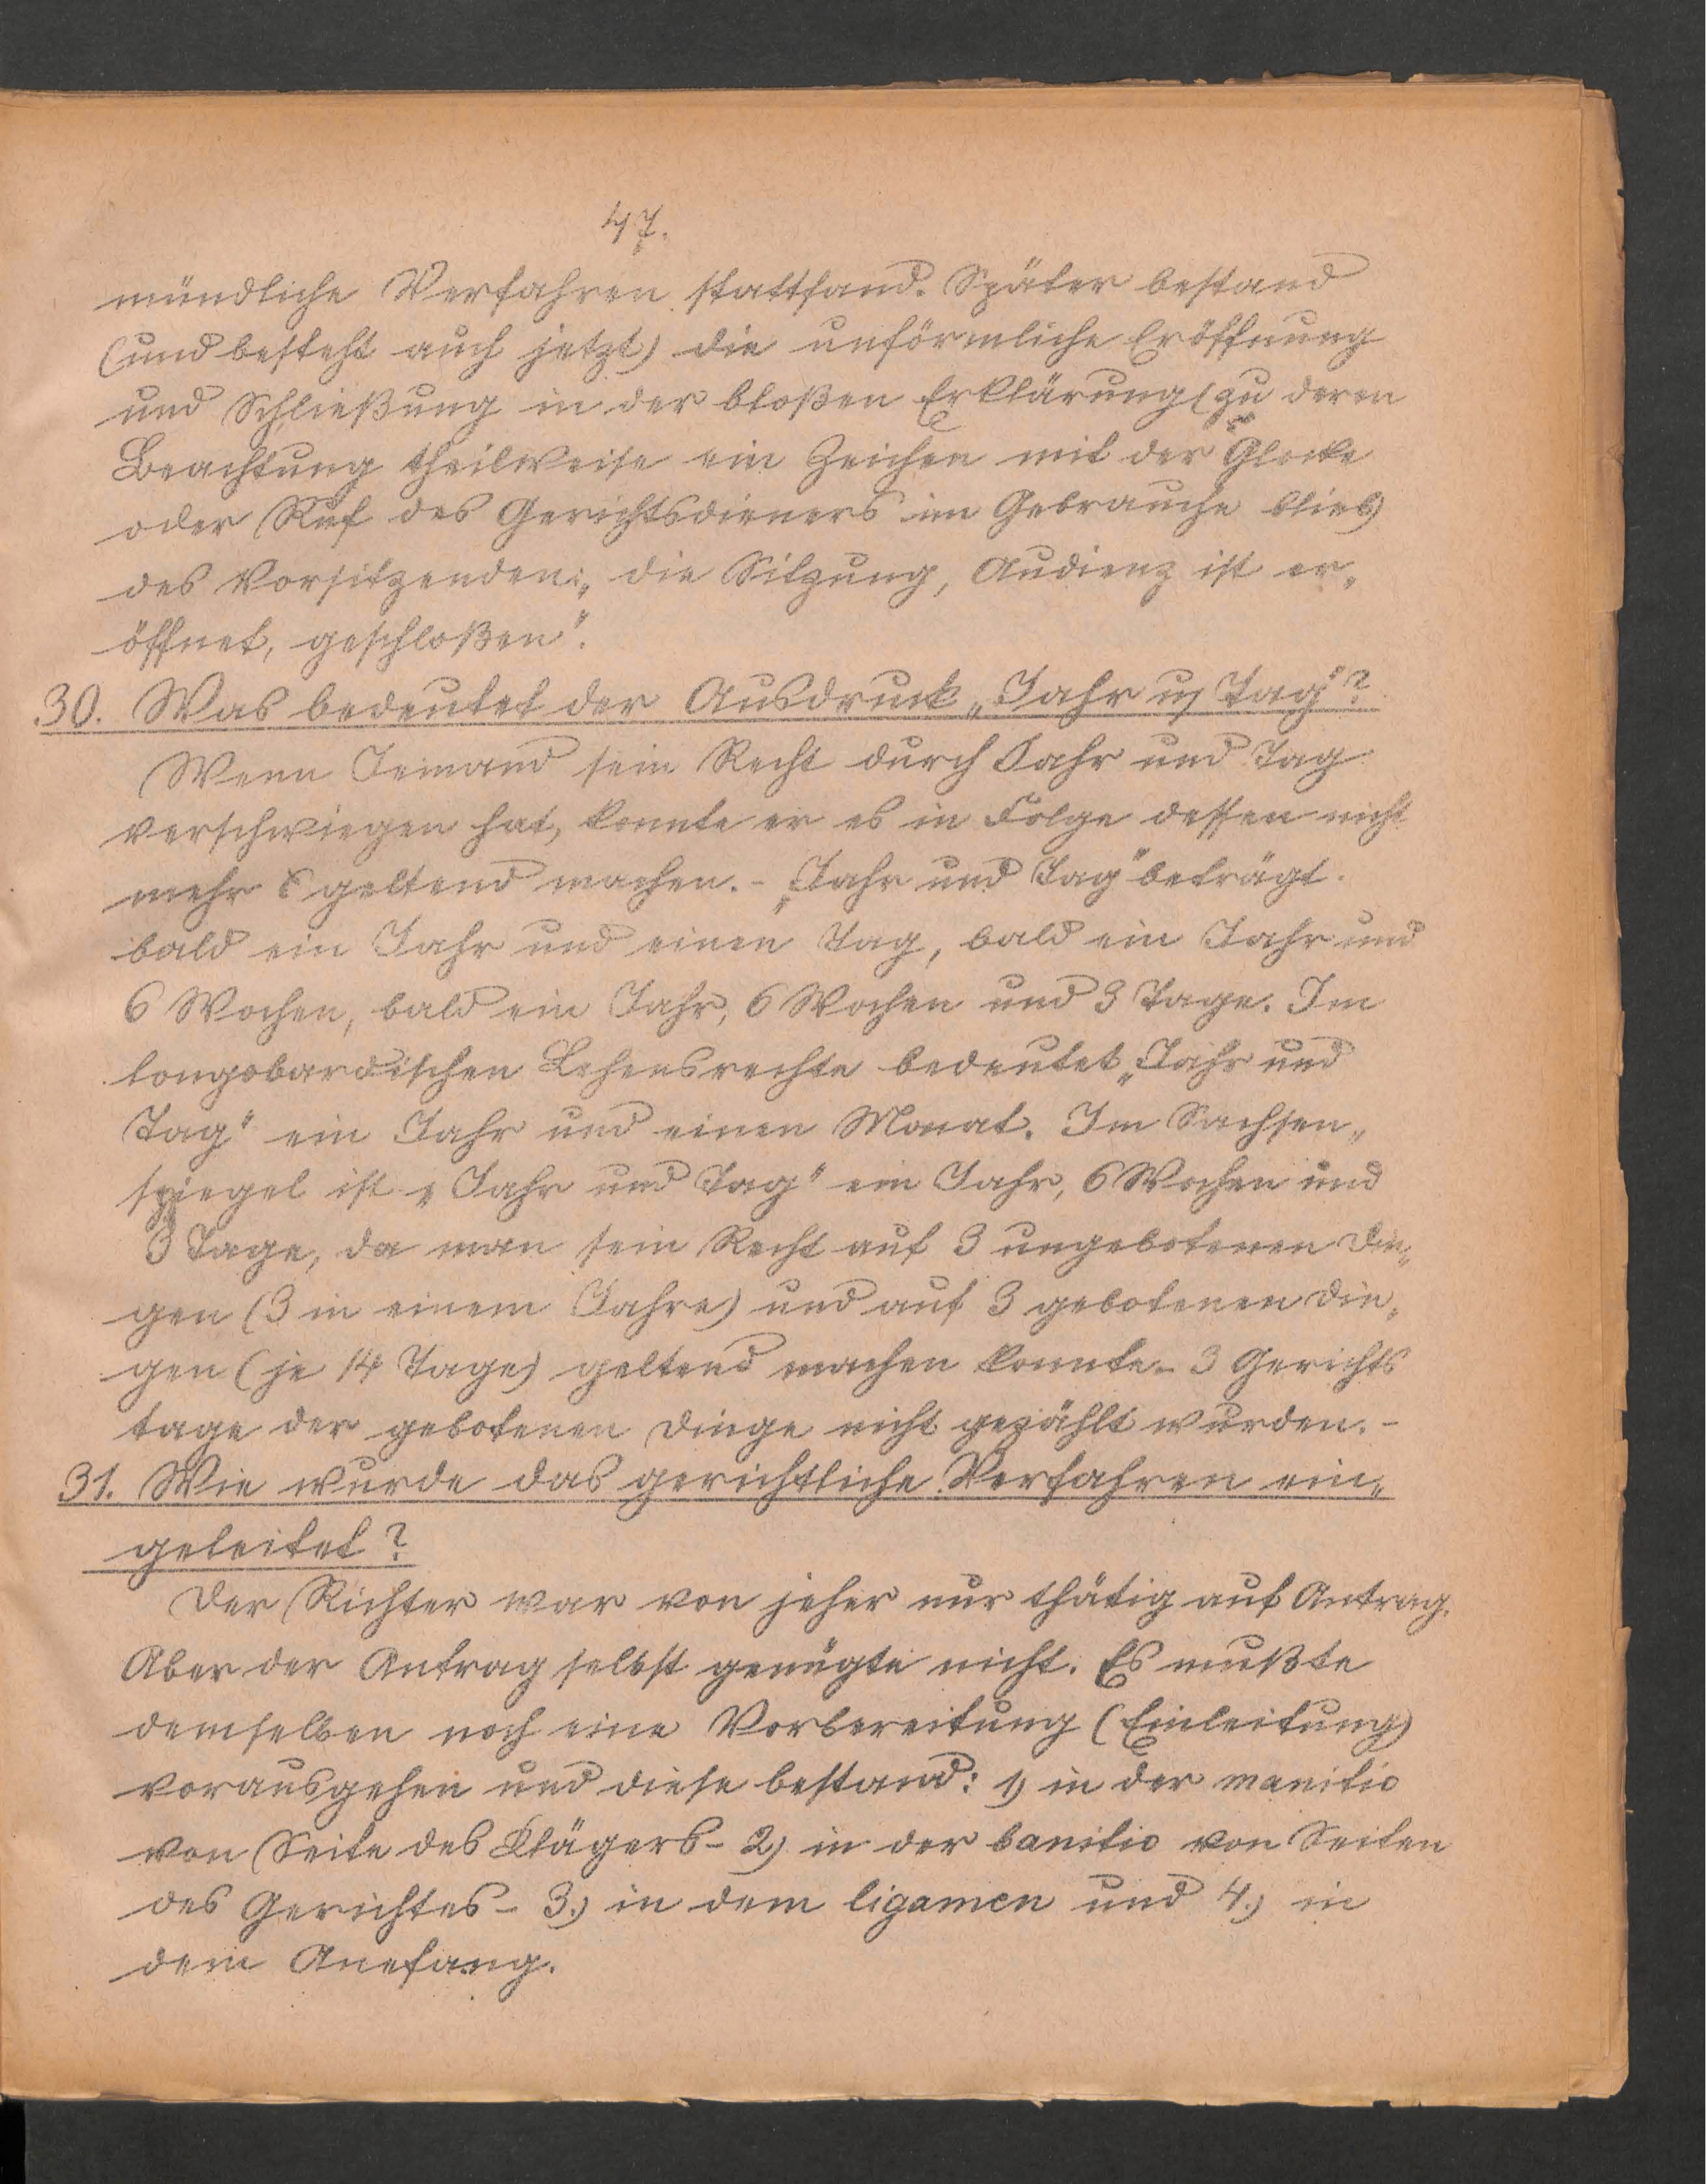 47.
mündliche Verfahren stattfand. Später bestand
(und besteht auch jetzt) die unförmliche Eröffnung
und Schließung in der bloßen Erklärung (zu deren
Beachtung theilweise ein Zeichen mit der Glocke
oder Ruf des Gerichtsdieners im Gebrauche blieb)
des Vorsitzenden: „die Sitzung, Audienz ist er„
öffnet, geschloßen".
30. Was bedeutet der Ausdruck „Jahr u. Tag"?
Wenn Jemand sein Recht durch Jahr und Tag
verschwiegen hat, konnte er es in Folge dessen nicht
mehr geltend machen. - „Jahr und Tag" beträgt
bald ein Jahr und einen Tag, bald ein Jahr und
6 Wochen, bald ein Jahr, 6 Wochen und 3 Tage. Im
longobardischen Lehensrechte bedeutet „Jahr und
Tag" ein Jahr und einen Monat. Im Sachsen„
spiegel ist „Jahr und Tag" ein Jahr, 6 Wochen und
3 Tage, da man sein Recht auf 3 ungebotenen Din„
gen (3 in einem Jahre) und auf 3 gebotenen Din„
gen (je 14 Tage) geltend machen konnte - 3 Gerichts
tage der gebotenen Dinge nicht gezählt wurden. -
31. Wie wurde das gerichtliche Verfahren ein„
geleitet?
Der Richter war von jeher nur thätig auf Antrag.
Aber der Antrag selbst genügte nicht. Es mußte
demselben noch eine Vorbereitung (Einleitung)
vorausgehen und diese bestand: 1) in der manitio
von Seite des Klägers - 2) in der banitio von Seiten
des Gerichtes - 3.) in dem ligamen und 4.) in
dem Anefang.